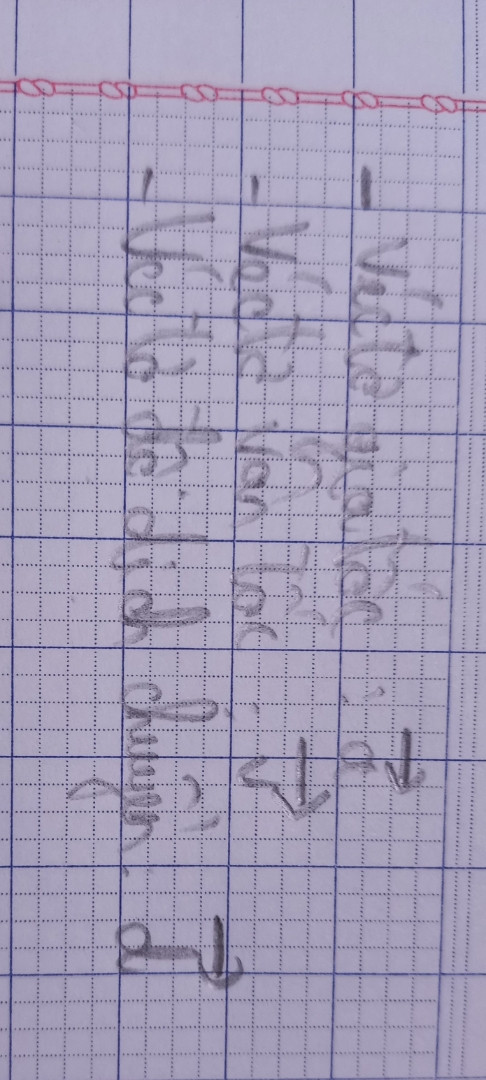 - Véctơ gia tốc : a⃗
- Véctơ vận tốc : v⃗
- Véctơ độ dịch chuyển : d⃗